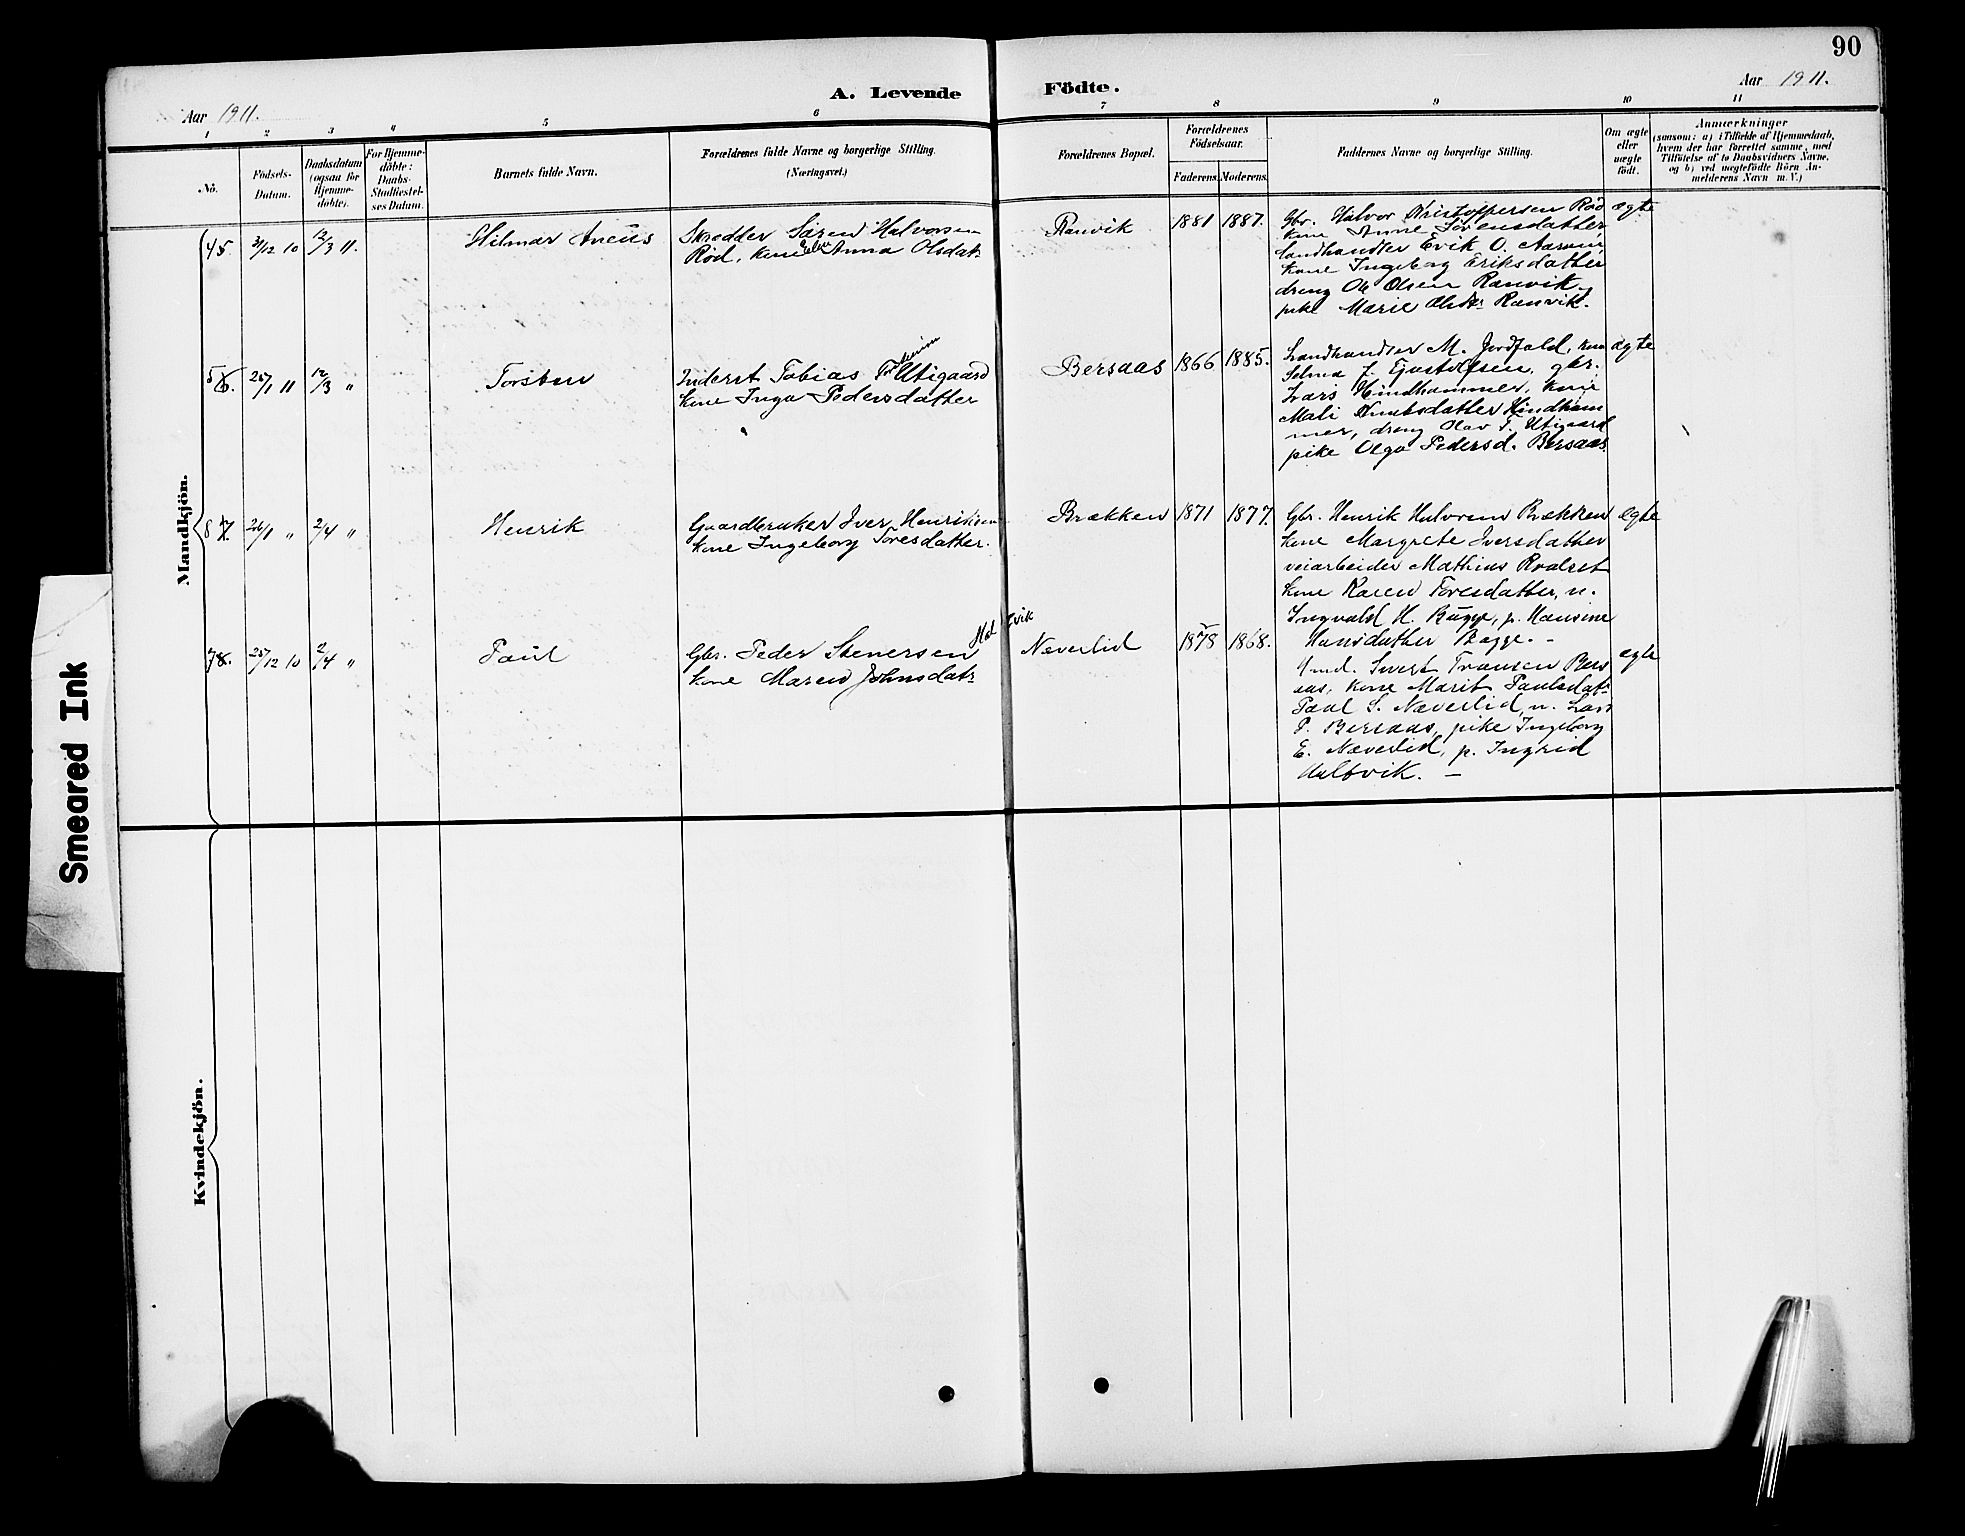 90
Aar 1911.
A. Levende Födte.
Aar 1911.
1 2 3 4 5 6 7 8 9 10 11
No.
Födsels-
Datum.
Daabsdatum
(ogsaa for
Hjemme-
döbte).
For Hjemme-
döbte:
Daabs-
Stadfæstel-
ses Datum.
Barnets fulde Navn.
Forældrenes fulde Navne og borgerlige Stilling.
(Næringsvei.)
Forældrenes Bopæl.
Forældrenes
Födselsaar.
Faderens. Moderens.
Faddernes Navne og borgerlige Stilling.
Om ægte
eller
uægte
födt.
Anmærkninger
(saasom: a) i Tilfælde af Hjemmedaab,
hvem der har forrettet samme, med
Tilföielse af to Daabsvidners Navne,
og b) ved uægtefödte Börn An-
melderens Navn m. V.)
Mandkjön.
45 31/12 10 12/3 11.
Hilmar
Skrædder Sören Halvorsen
Röd, kone Anna Olsdatr
Ranvik 1881 1887.
Gbr. Halvor Kristoffersen Röd
kone Anne Sörensdatter,
landhandler Erik O.
kone Ingeborg Eriksdatter
dreng Ole Olsen Ranvik
pike Marie Olsdtr Ranvik.
ægte
5 6. 25/1 11 12/3 "
Torsten
Inderst Tobias Utigaard
kone Inga Pedersdatter
Bersaas 1866 1885.
Landhandler M. Jordfald, kone
Selma J. Ejustolfsen, gbr.
Lars Hindhammer, kone
Mali Knutsdatter Hindham
mer, dreng Olav T. Utigaard
pike Olga Pedersd. Bersaas.
ægte
8 7. 26/1 " 2/4 "
Henrik
Gaardbruker Iver Henriksen
kone Ingeborg Toresdatter.
Brækken 1871 1877.
Gbr. Henrik Halvorsen Brækken
kone Margrete Iversdatter
veiarbeider Mathias
kone Karen Toresdatter, u.
Ingvald H. Bugge, p. Hansine
Hansdatter Bagge. -
ægte
78. 25/12 10 2/4 "
Paul
Gbr. Peder Stenersen
kone Maren Johnsdatr
Neverlid 1878 1868.
Sivert Transen Bers
aas, kone Marit Paulsdatr
Paul S. Næverlid, u. Lars
P. Bersaas, pike Ingeborg
E. Næverlid, p. Ingrid
Hulbvik. -
ægte
Kvindekjön.
Smeared Ink